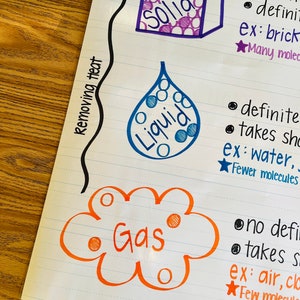 Solid
definit
ex: brick
★Many molecu
Removing Heat
Liquid
definite
takes sha
ex: water,
★Fewer molecules
Gas
no defin
takes s
ex: air, cl
★Few mole